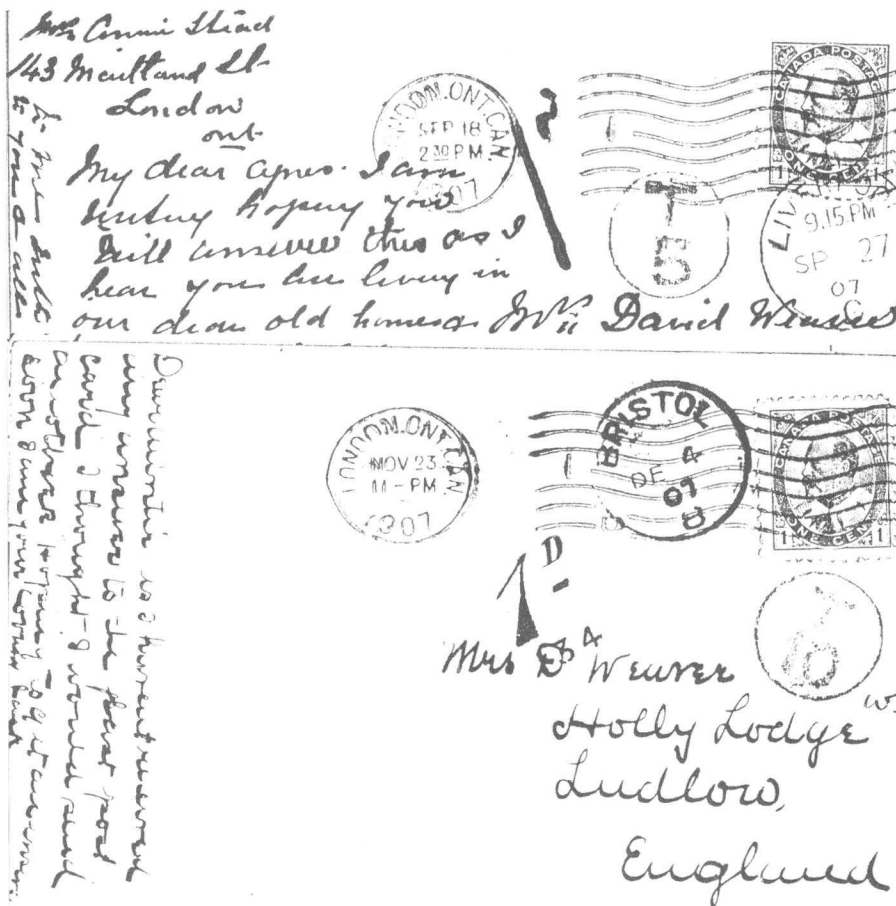 Mrs Connie Stead
143 Maitland St
London
ont
My dear agnes. I am
writing hoping you
will answer this as I
hear you are living in
our dear old homes
to you a all
LONDON. ONT. CAN
SEP 18
2 30 PM
1907
CANADA POSTAGE
ONE CENT
1
T
5
9.15.PM
SP 27
07
C
Mrs David Weaver
my answer to the first post
card I thought I would send
another hoping to get answer.
LONDON. ONT. CAN
NOV 23
11 - PM
1907
BRISTOL
DE 4
07
8
CANADA POSTAGE
ONE CENT
1 1
1 D
T
10
Mrs D Weaver
Holly Lodge
Ludlow,
England